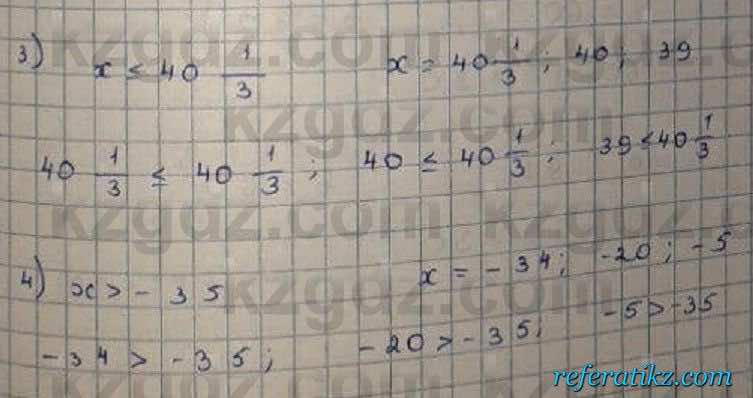 3) x ≤ 40 1/3 x = 40 1/3; 40; 39
40 1/3 ≤ 40 1/3; 40 ≤ 40 1/3; 39 ≤ 40 1/3
4) x > - 35 x = - 34; -20; -5
-34 > -35; -20 > -35; -5 > -35
kzgdz.com
kzgdz.com
kzgdz.com
kzgdz.com
kzgdz.com
kzgdz.com
referatikz.com